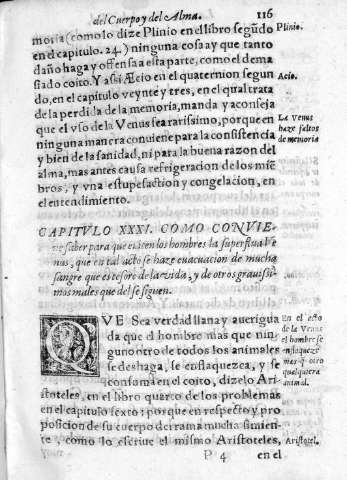 del Cuerpo y del Alma. 116
moria (como lo dize Plinio en el libro segũdo
en el capitulo. 24.) ninguna cosa ay que tanto
daño haga y offensa a esta parte, como el dema
siado coito. Y assi Æcio en el quaternion segun
do, en el capitulo veynte y tres, en el qual trata
de la perdida de la memoria, manda y aconseja
que el vso de la Venus sea rarissimo, porque en
ninguna manera conuiene para la consistencia
y bien de la sanidad, ni para la buena razon del
alma, mas antes causa refrigeracion de los miẽ
bros, y vna estupefaction y congelacion, en
el entendimiento.
Plinio.
Acio.
La Venus
haze faltos
de memoria
CAPITVLO XXXI. COMO CONVIE
ne saber para que euiten los hombres la superflua Ve
nus, que en tal acto se haze euacuacion de mucha
sangre que es tesoro de la vida, y de otros grauissi-
mos males que del se siguen.
QVE Sea verdad llana y auerigua
da que el hombre mas que nin-
guno otro de todos los animales
se deshaga, se enflaquezca, y se
consuma en el coito, dizelo Ari-
stoteles, en el libro quarto de los problemas
en el capitulo sexto: porque en respecto y pro
posicion de su cuerpo derrama mucha simien-
te, como lo escriue el mismo Aristoteles,
En el acto
de la Venus
el hombre se
enflaqueze
mas q̃ otro
qualquiera
animal.
Aristotel.
P 4 en el